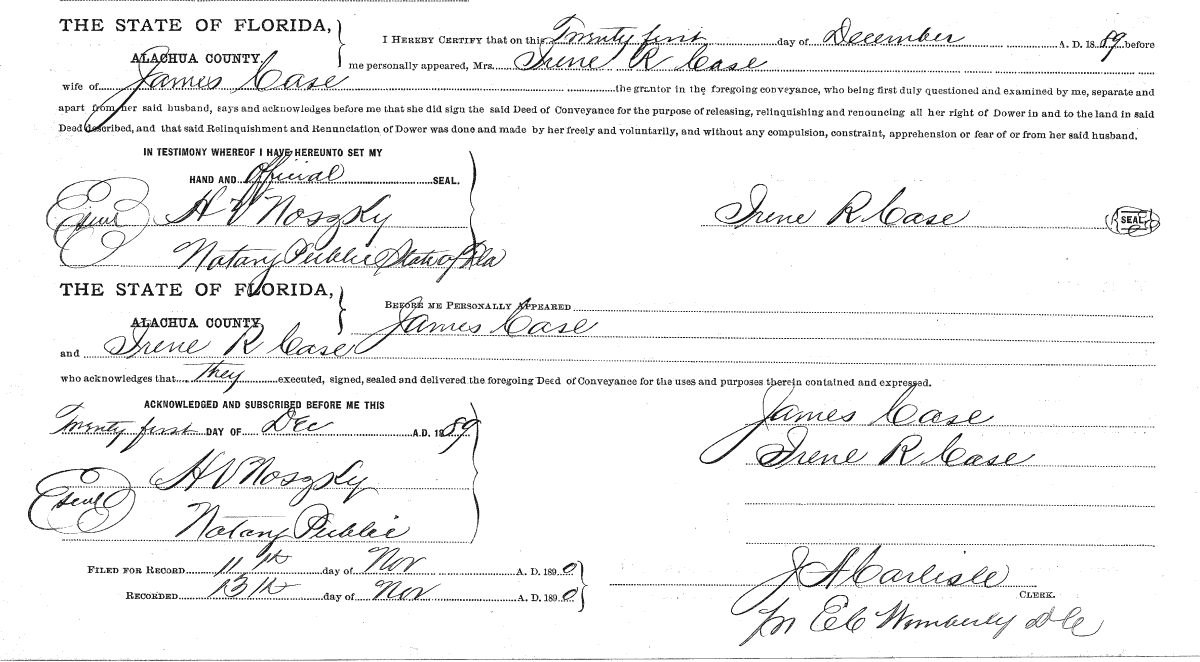 THE STATE OF FLORIDA,
ALACHUA COUNTY.
I HEREBY CERTIFY that on this Twenty first day of December A. D. 1889 before
me personally appeared, Mrs. Irene R Case
wife of James Case the grantor in the foregoing conveyance, who being first duly questioned and examined by me, separate and
apart from her said husband, says and acknowledges before me that she did sign the said Deed of Conveyance for the purpose of releasing, relinquishing and renouncing all her right of Dower in and to the land in said
Deed described, and that said Relinquishment and Renunciation of Dower was done and made by her freely and voluntarily, and without any compulsion, constraint, apprehension or fear of or from her said husband.
IN TESTIMONY WHEREOF I HAVE HEREUNTO SET MY
HAND AND official SEAL.
seal H V Noszky
Irene R Case SEAL
Notary Public State of Fla
THE STATE OF FLORIDA,
ALACHUA COUNTY
BEFORE ME PERSONALLY APPEARED
James Case
and Irene R Case
who acknowledges that they executed, signed, sealed and delivered the foregoing Deed of Conveyance for the uses and purposes therein contained and expressed.
ACKNOWLEDGED AND SUBSCRIBED BEFORE ME THIS
Twenty first DAY OF Dec A.D. 1889
James Case
Irene R Case
seal H V Noszky
Notary Public
FILED FOR RECORD 11th day of Nov A. D. 1890
RECORDED 13th day of Nov A. D. 1890
J A Carlisle CLERK.
Wimberly D C